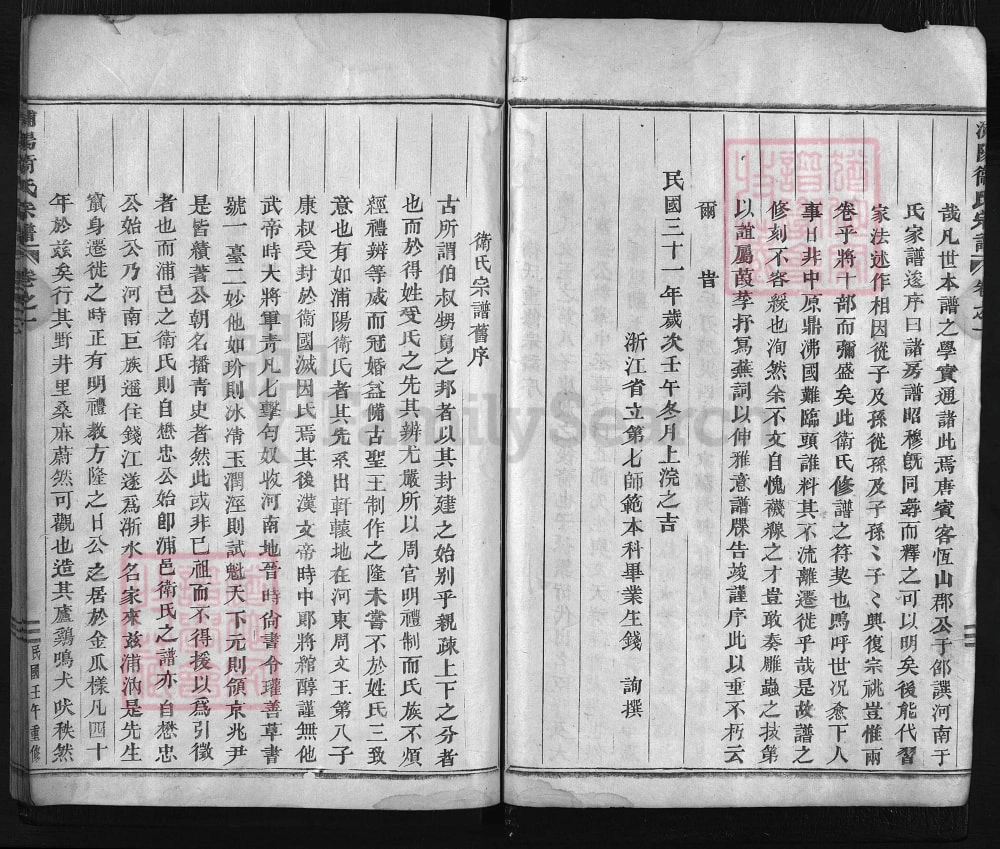 哉凡世本譜之學實通諸此焉唐賓客恆山郡公于邵譔河南于
氏家譜遂序曰諸房譜昭穆旣同尋而釋之可以明矣後能代習
家法述作相因從子及孫從孫及子孫〻子〻興復宗祧豈惟兩
卷乎將十部而彌盛矣此衛氏修譜之符契也嗚呼世况愈下人
事日非中原鼎沸國難臨頭誰料其不流離遷徙乎哉是故譜之
修刻不容綏也洵然余不文自愧襪線之才豈敢奏雕蟲之技第
以誼屬葭莩抒寫蕪詞以伸雅意譜牒告竣謹序此以重不朽云
爾 旹
民國三十一年歲次壬午冬月上浣之吉
浙江省立第七師範本科畢業生錢 詢撰
浦陽衛氏宗譜 卷之一
衛氏宗譜舊序
古所謂伯叔甥舅之邦者以其封建之始别乎親疎上下之分者
也而於得姓受氏之先其辨尤嚴所以周官明禮制而氏族不煩
經禮辨等威而冠婚益備古聖王制作之隆未嘗不於姓氏三致
意也有如浦陽衛氏者其先系出軒轅地在河東周文王第八子
康叔受封於衞國滅因氏焉其後漢文帝時中郎將綰醇謹無他
武帝時大將軍青凡七擊匈奴收河南地晉時尙書令瓘善草書
號一臺二妙他如玠則冰清玉潤涇則試魁天下元則領京兆尹
是皆績著公朝名播靑史者然此或非已祖而不得援以爲引徵
者也而浦邑之衛氏則自懋忠公始卽浦邑衛氏之譜亦自懋忠
公始公乃河南巨族遥住錢江遂爲浙水名家來兹浦汭是先生
竄身遷徙之時正有明禮教方隆之日公之居於金瓜樣凡四十
年於兹矣行其野井里桑麻蔚然可觀也造其廬鷄鳴犬吠秩然
浦陽衛氏宗譜 卷之一
民國壬午重修
FamilySearch